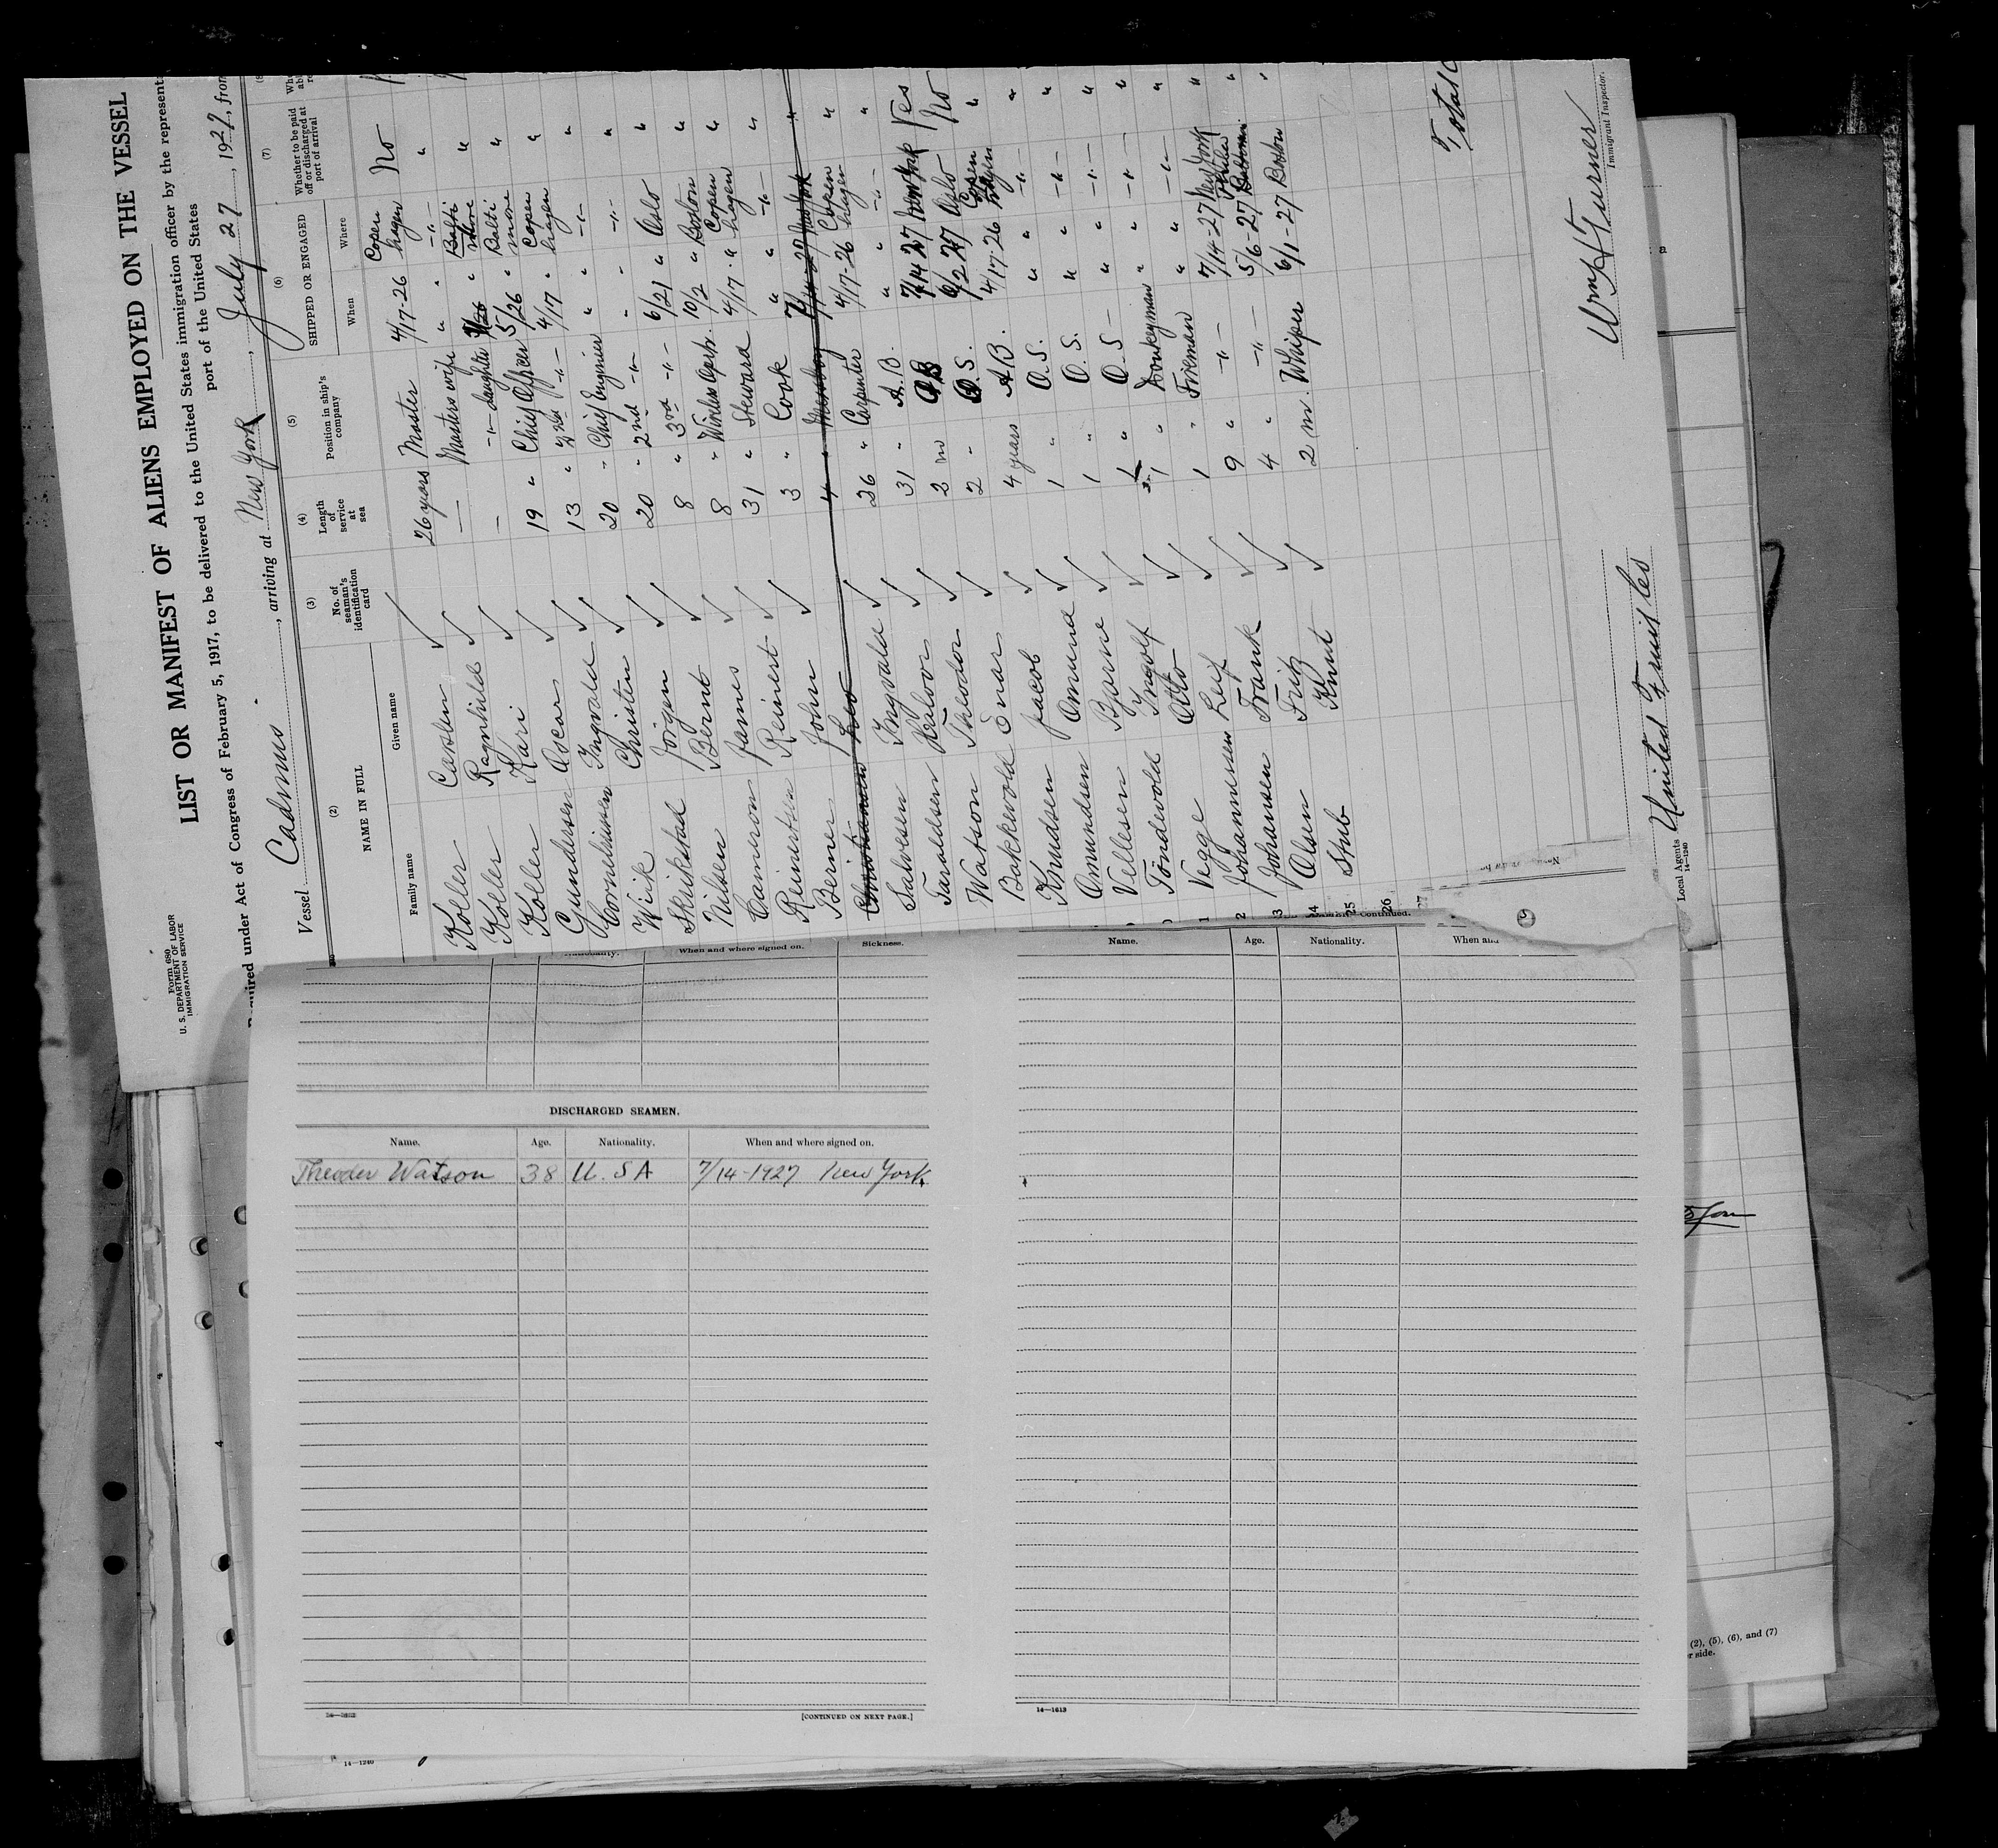 Form 680
U. S. DEPARTMENT OF LABOR
IMMIGRATION SERVICE
LIST OR MANIFEST OF ALIENS EMPLOYED ON THE VESSEL
Required under Act of Congress of February 5, 1917, to be delivered to the United States immigration officer by the represent
port of the United States
Vessel Cadmus, arriving at New York, July 27, 1927, from
(2) (3) (4) (5) (6) (7)
NAME IN FULL
No. of seaman's identification card
Length of service at sea
Position in ship's company
SHIPPED OR ENGAGED
Whether to be paid off or discharged at port of arrival
Family name Given name When Where
Koller Carsten ✓ 26 years Master 4/17-26 Copen hagen No
Koller Ragnhild ✓ — Masters wife " " -"- "
Koller Kari ✓ — -"- daughter " Balti more "
Gundersen Oscar ✓ 19 " Chief Officer 5/26 " Balti more "
Corneliussen Ingvald ✓ 13 " 2nd -"- 4/17 " Copen hagen "
Wiik Christen ✓ 20 " Chief Engineer " " -"- "
Skeikstad Jörgen ✓ 20 " 2nd -"- " " -"- "
Nilsen Bernt ✓ 8 " 3rd -"- 6/21 " Oslo "
Cameron James ✓ 8 " Wireless Oprt. 10/2 " Boston "
Reinertsen Reinert ✓ 31 " Steward 4/17 " Copen hagen "
Berner John ✓ 3 " Cook " " -"- "
Leo 4 " Messboy 7/14-27 New York "
Salvesen Ingvald ✓ 26 " Carpenter 4/17-26 Copen hagen "
Taraldsen Halvor ✓ 31 " A.B. " " -"- "
Watson Theodor ✓ 2 m AB 7/14 27 New York Yes
Bakkevold Enar ✓ 2 " O.S. 6/2 27 Oslo No
Knudsen Jacob ✓ 4 years A.B. 4/17-26 Copen hagen "
Omundsen Omund ✓ 1 " O.S. " " -"- "
Vellesen Bjarne ✓ 1 " O.S. " " -"- "
Töndevold Ingolf ✓ 1 " O.S. " " -"- "
Vegge Otto ✓ 1 " Donkeyman " " -"- "
Johannessen Leif ✓ 1 " Fireman " " -"- "
Johansen Frank ✓ 9 " -"- 7/14-27 New York "
Olsen Fritz ✓ 4 " -"- 5/6-27 Phila "
Stub Knut ✓ 2 m. Wiper 6/1-27 Boston "
24
25
26
Total
Immigrant Inspector.
Local Agents United Fruit Co
14—1240
When and where signed on. Sickness.
Continued.
Name. Age. Nationality. When and
DISCHARGED SEAMEN.
Name. Age. Nationality. When and where signed on.
Theoder Watson 38 U. S A 7/14-1927 New York.
[CONTINUED ON NEXT PAGE.]
14—1613
14—1240
(2), (5), (6), and (7)
r side.
4